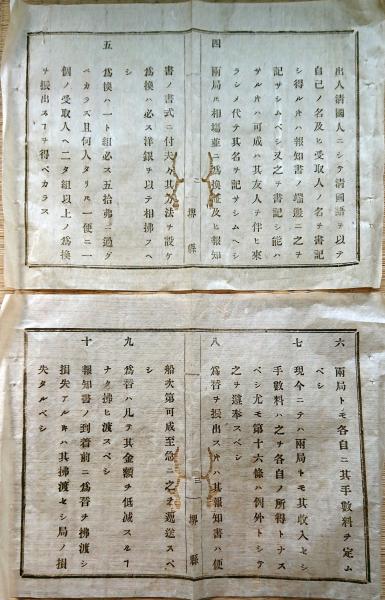 出人清國人ニシテ清國語ヲ以テ
自己ノ名及ヒ受取人ノ名ヲ書記
シ得ル片ハ報知書ノ端邊ニ之ヲ
記サシムベシ又之ヲ書記シ能ハ
サル片ハ可成ハ其友人ヲ伴ヒ來
ラシメ代テ其名ヲ記サシムヘシ
四 兩局ハ相場並ニ爲換證及ヒ報知
二 堺縣
書ノ書式ニ付夫々其方法ヲ設ケ
爲換ハ必ス洋銀ヲ以テ相拂スヘ
シ
五 爲換ハ一ト組必ス五拾弗ニ過グ
ベカラズ且何人タリ𪜈一便ニ一
個ノ受取人ヘ二タ組以上ノ爲換
ヲ振出スヿヲ得ベカラス
六 兩局トモ各自ニ其手數料ヲ定ム
ベシ
七 現今ニテハ兩局トモ其收入セシ
手數料ハ之ヲ各自ノ所得トナス
ベシ尤モ第十六條ハ例外トシテ
之ヲ遵奉スベシ
八 爲替ヲ振出ス片ハ其報知書ハ便
三 堺縣
船次第可成至急ニ之ヲ遞送スベ
シ
九 爲替ハ凡テ其金額ヲ低減スルヿ
ナク拂ヒ渡スベシ
十 報知書ノ到着前ニ爲替ヲ拂渡シ
損失アル片ハ其拂渡セシ局ノ損
失タルベシ